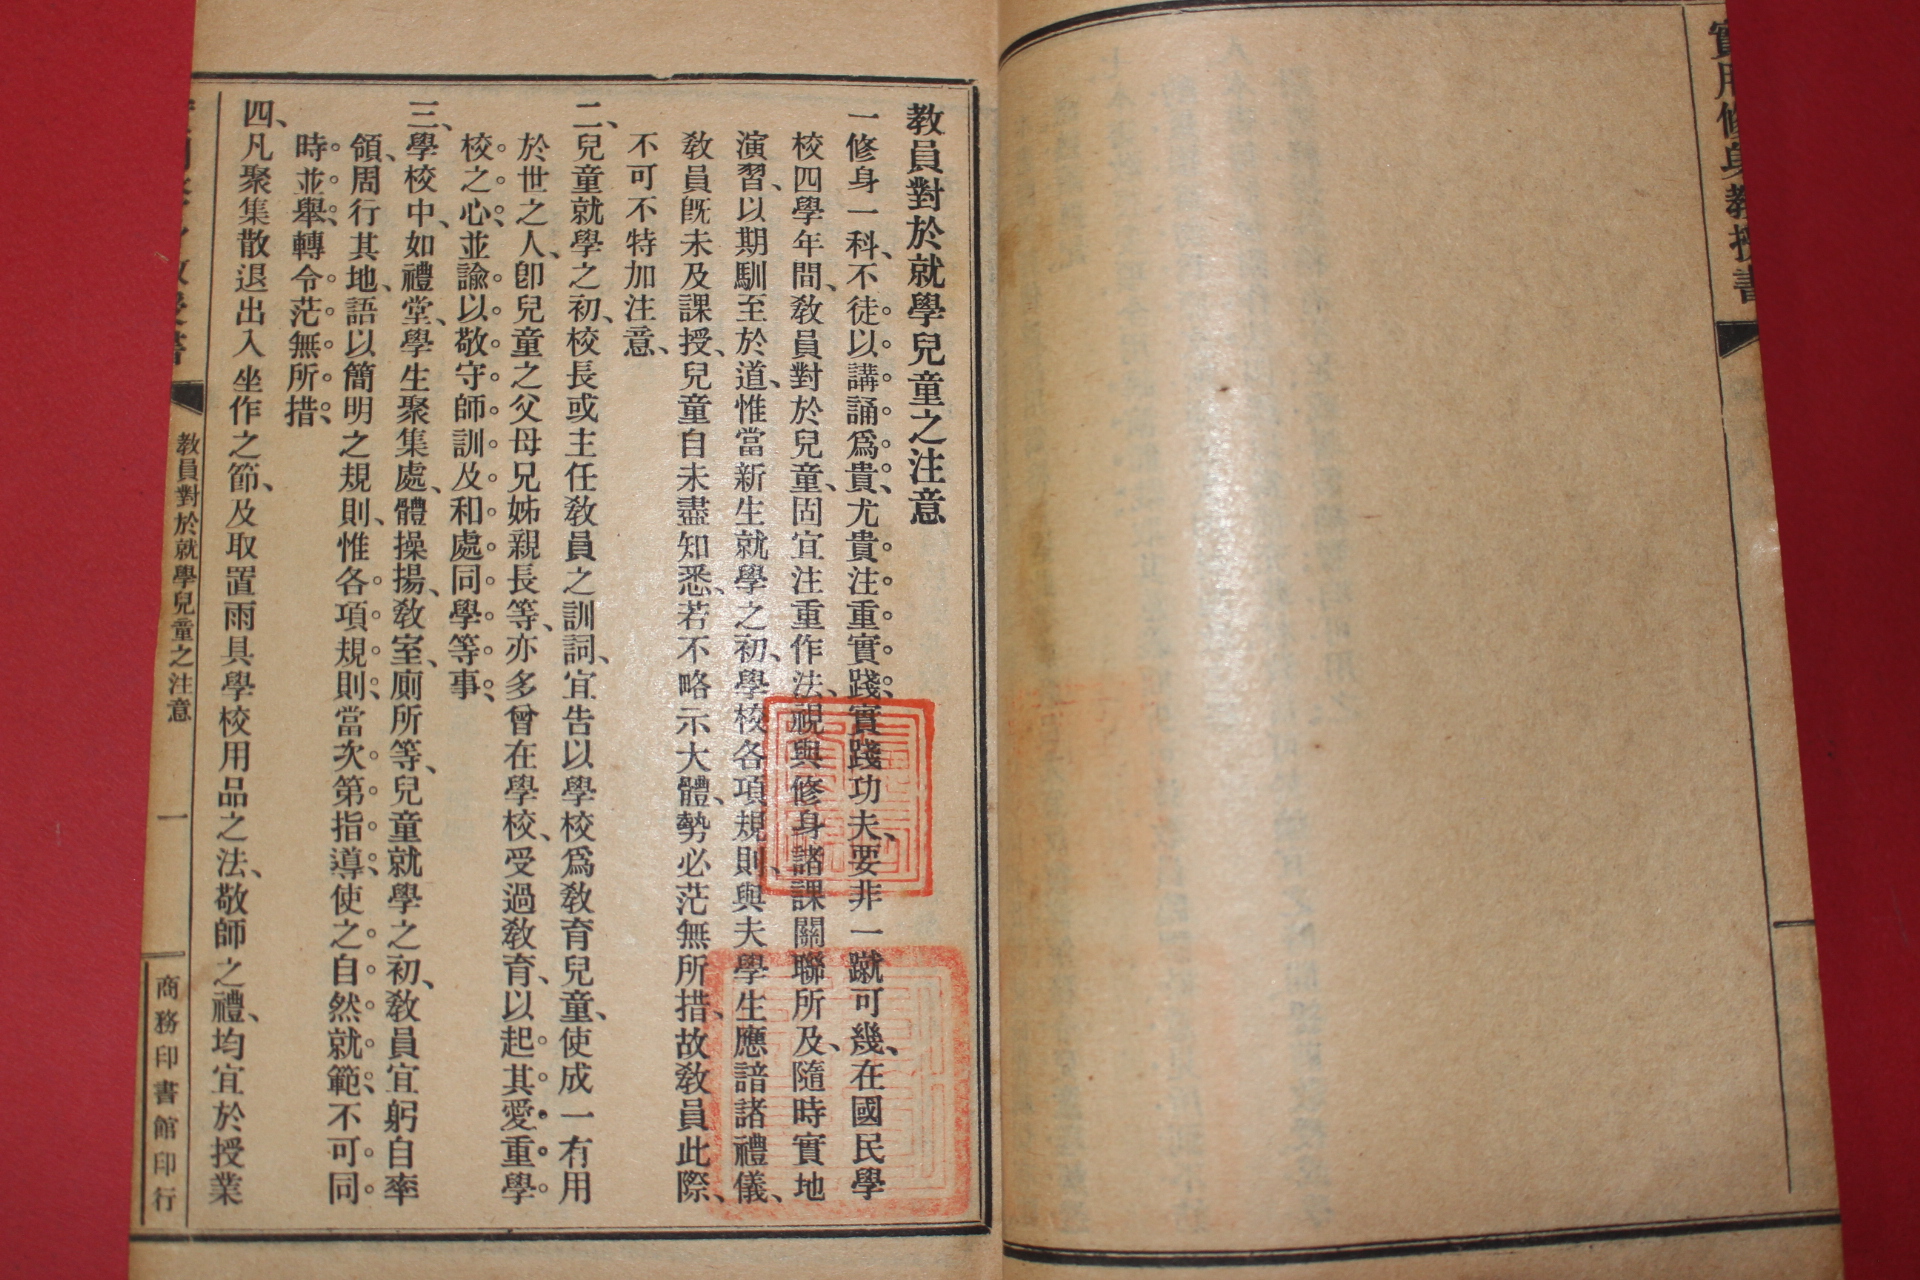 實用修身教授書
教員對於就學兒童之注意
一修身一科、不徒以講誦爲貴、尤貴注重實踐、實踐功夫、要非一蹴可幾、在國民學
校四學年間、敎員對於兒童、固宜注重作法、視與修身諸課關聯所及、隨時實地
演習、以期馴至於道、惟當新生就學之初、學校各項規則、與夫學生應諳諸禮儀、
敎員旣未及課授、兒童自未盡知悉、若不略示大體、勢必茫無所措、故敎員此際、
不可不特加注意、
二、兒童就學之初、校長或主任敎員之訓詞、宜告以學校爲敎育兒童、使成一有用
於世之人、卽兒童之父母兄姊親長等、亦多曾在學校、受過敎育、以起其愛重學
校之心、並諭以敬守師訓及和處同學等事、
三、學校中、如禮堂、學生聚集處、體操場、敎室、廁所等、兒童就學之初、敎員宜躬自率
領、周行其地、語以簡明之規則、惟各項規則、當次第指導、使之自然就範、不可同
時並舉、轉令茫無所措、
四、凡聚集散退出入坐作之節、及取置雨具學校用品之法、敬師之禮、均宜於授業
教員對於就學兒童之注意
一
商務印書館印行